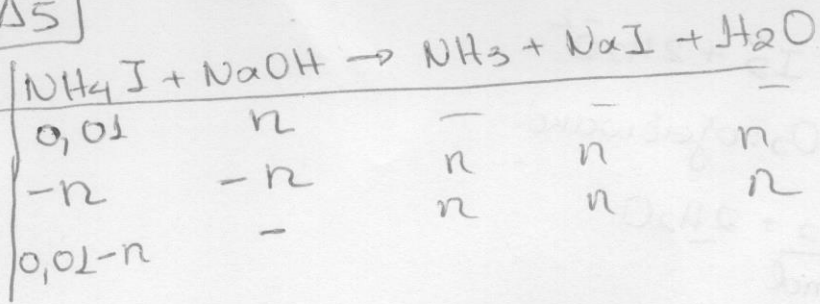 Δ5
NH4I + NaOH → NH3 + NaI + H2O
0,01 n – – –
-n -n n n n
0,01-n - n n n